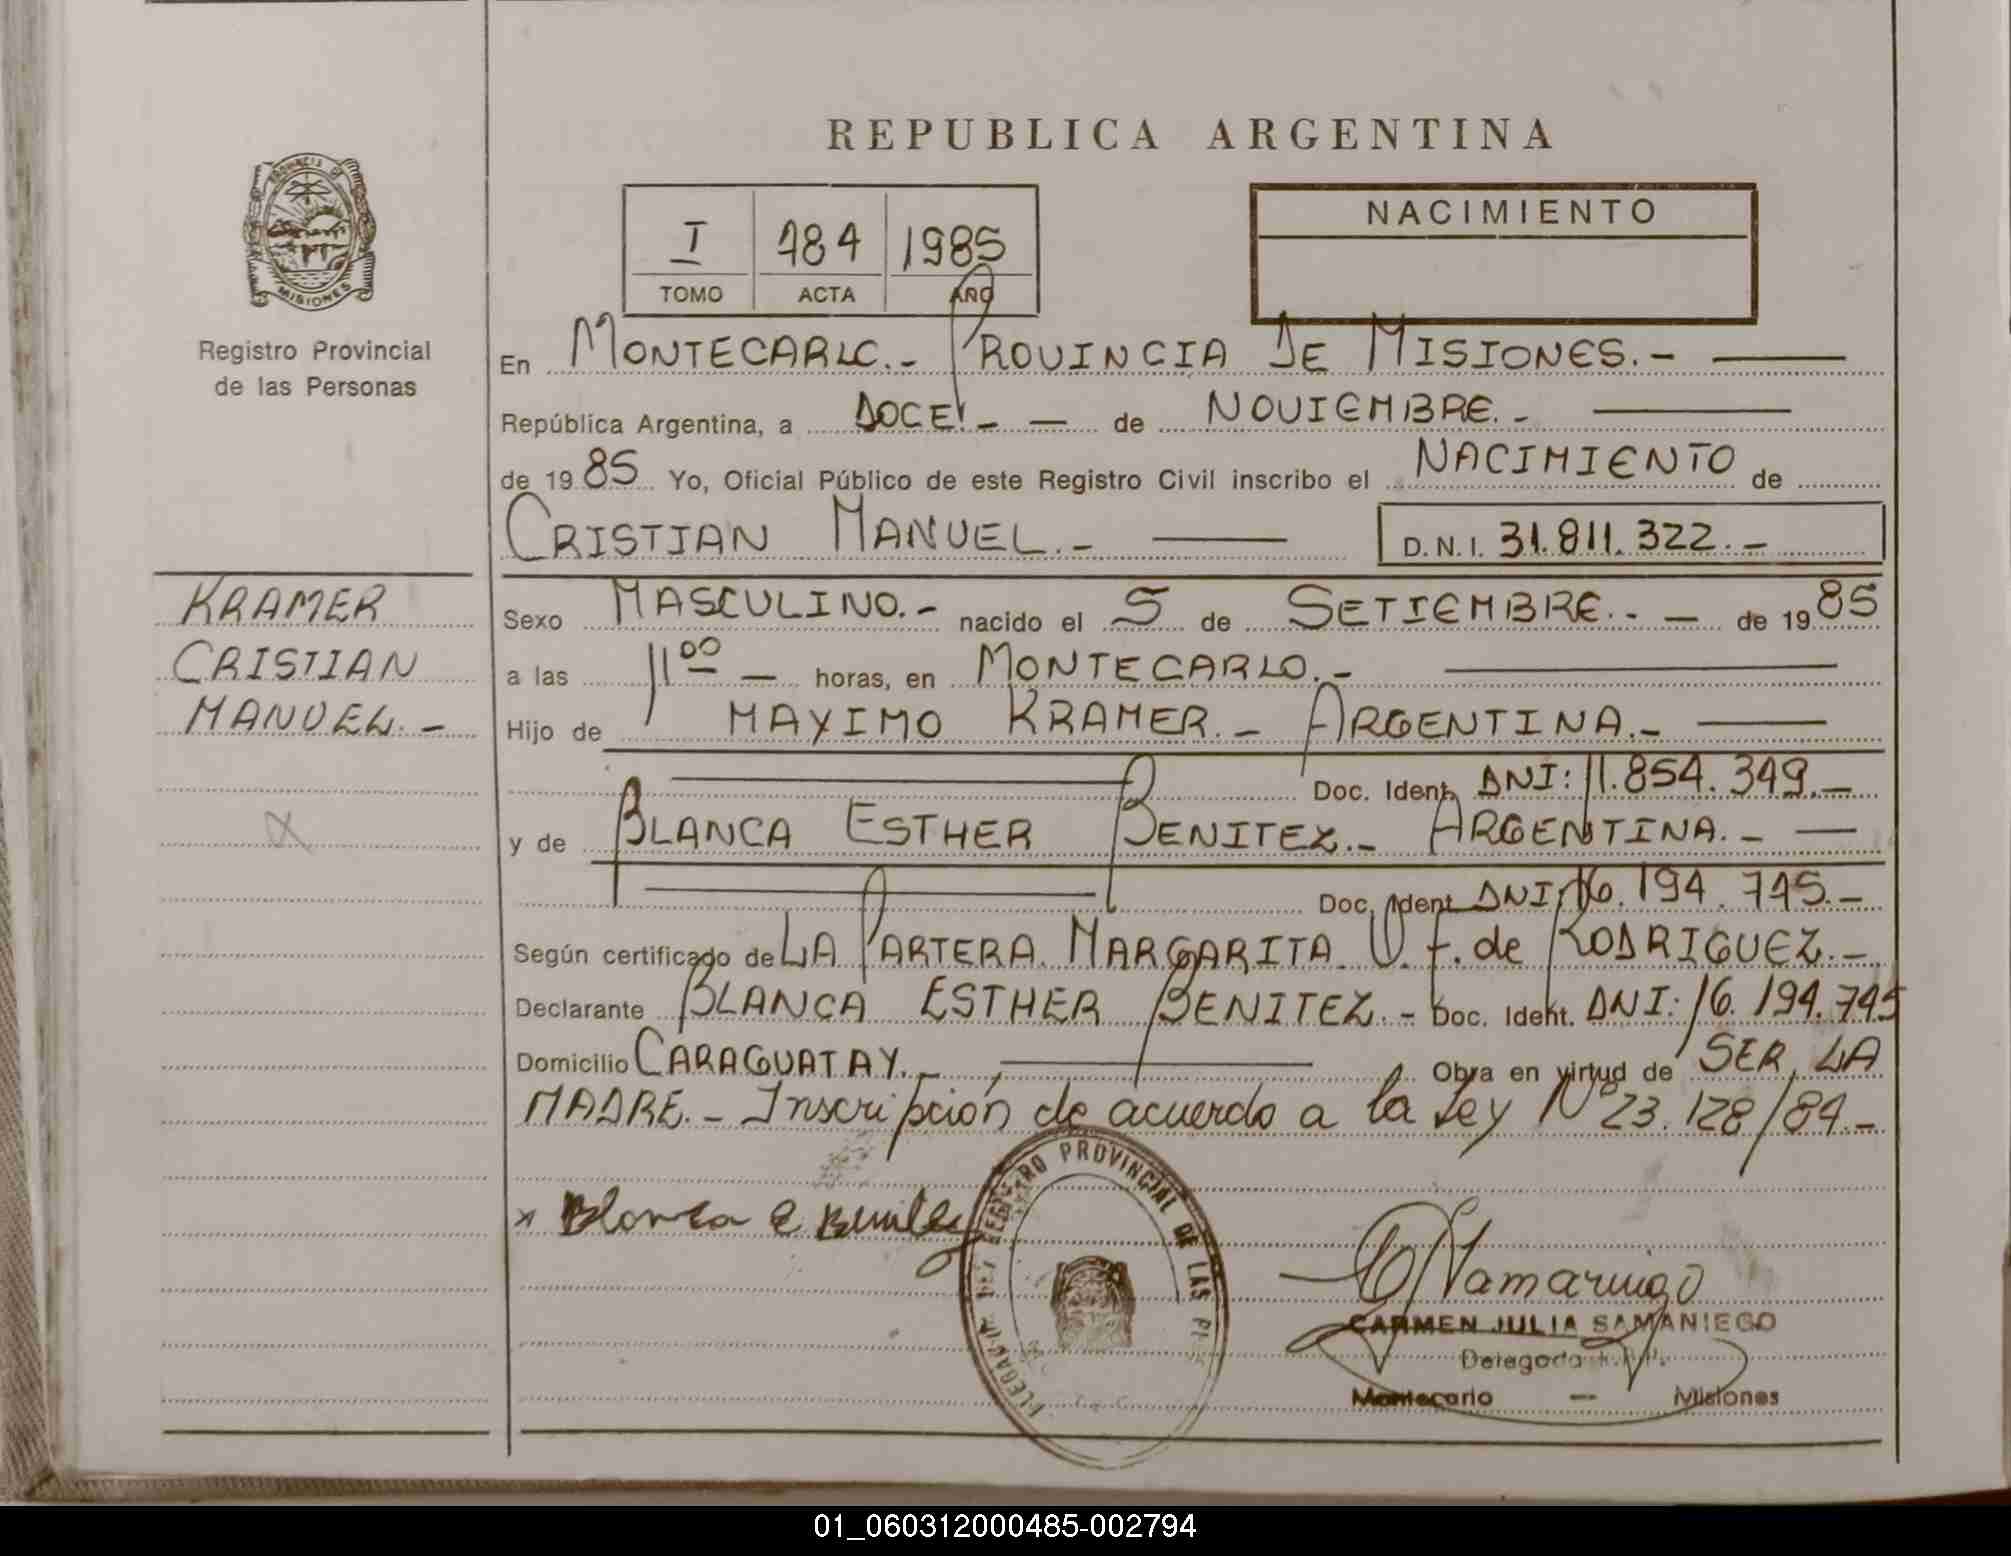 REPUBLICA ARGENTINA
PROVINCIA DE
MISIONES
Registro Provincial
de las Personas
I 484 1985
TOMO ACTA AÑO
NACIMIENTO
En MONTECARLO.- PROVINCIA DE MISIONES.-
República Argentina, a DOCE.- de NOVIEMBRE.-
de 1985 Yo, Oficial Público de este Registro Civil inscribo el NACIMIENTO de
CRISTIAN MANUEL.- D.N.I. 31.811.322.-
KRAMER
CRISTIAN
MANUEL.-
Sexo MASCULINO.- nacido el 5 de SETIEMBRE.- de 1985
a las 11⁰⁰ horas, en MONTECARLO.-
Hijo de MAXIMO KRAMER.- ARGENTINA.-
Doc. Ident. DNI: 11.854.349.-
y de BLANCA ESTHER BENITEZ.- ARGENTINA.-
Doc. Ident. DNI: 16.194.745.-
Según certificado de LA PARTERA MARGARITA V. F. de RODRIGUEZ.-
Declarante BLANCA ESTHER BENITEZ.- Doc. Ident. DNI: 16.194.745
Domicilio CARAGUATAY.- Obra en virtud de SER LA
MADRE.- Inscripción de acuerdo a la Ley Nº 23.128/84.-
x Blanca E Benitez
REGISTRO PROVINCIAL DE LAS
CARMEN JULIA SAMANIEGO
Delegada R.P.P.
Montecarlo — Misiones
01_060312000485-002794